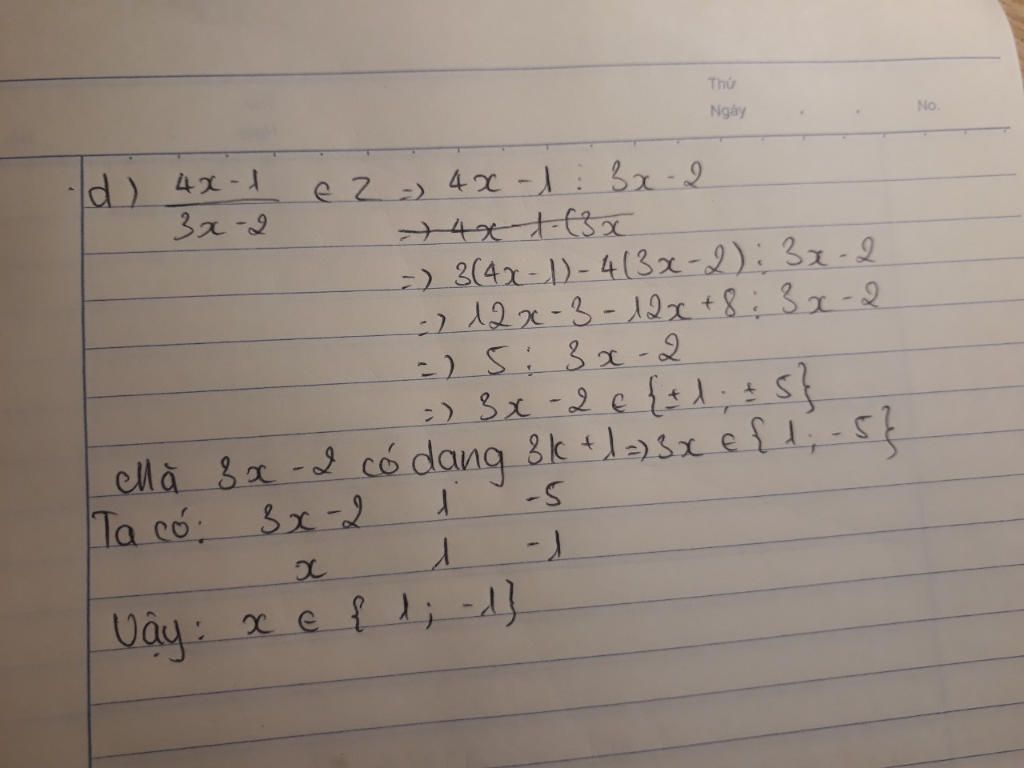 Thứ
Ngày . . No.
d) \frac{4x-1}{3x-2} ∈ Z => 4x - 1 ⋮ 3x - 2
=> 4x - 1 - (3x
=> 3(4x-1) - 4(3x-2) ⋮ 3x - 2
=> 12x - 3 - 12x + 8 ⋮ 3x - 2
=> 5 ⋮ 3x - 2
=> 3x - 2 ∈ {±1 ; ± 5}
Mà 3x - 2 có dang 3k + 1 => 3x ∈ { 1 ; - 5}
Ta có: 3x - 2 1 -5
x 1 -1
Vậy: x ∈ { 1 ; -1}